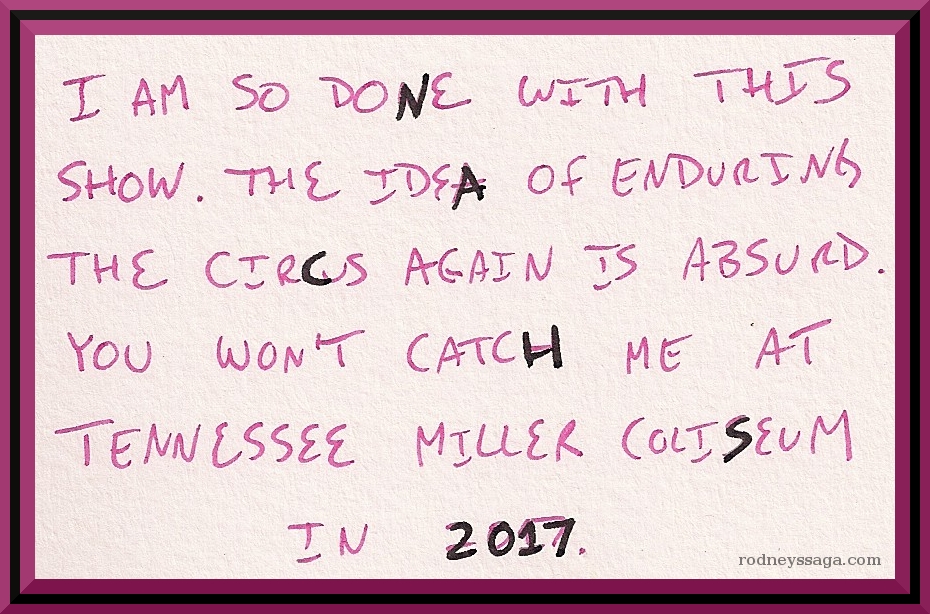 I AM SO DONE WITH THIS
SHOW. THE IDEA OF ENDURING
THE CIRCUS AGAIN IS ABSURD.
YOU WON'T CATCH ME AT
TENNESSEE MILLER COLISEUM
IN 2017.
rodneyssaga.com